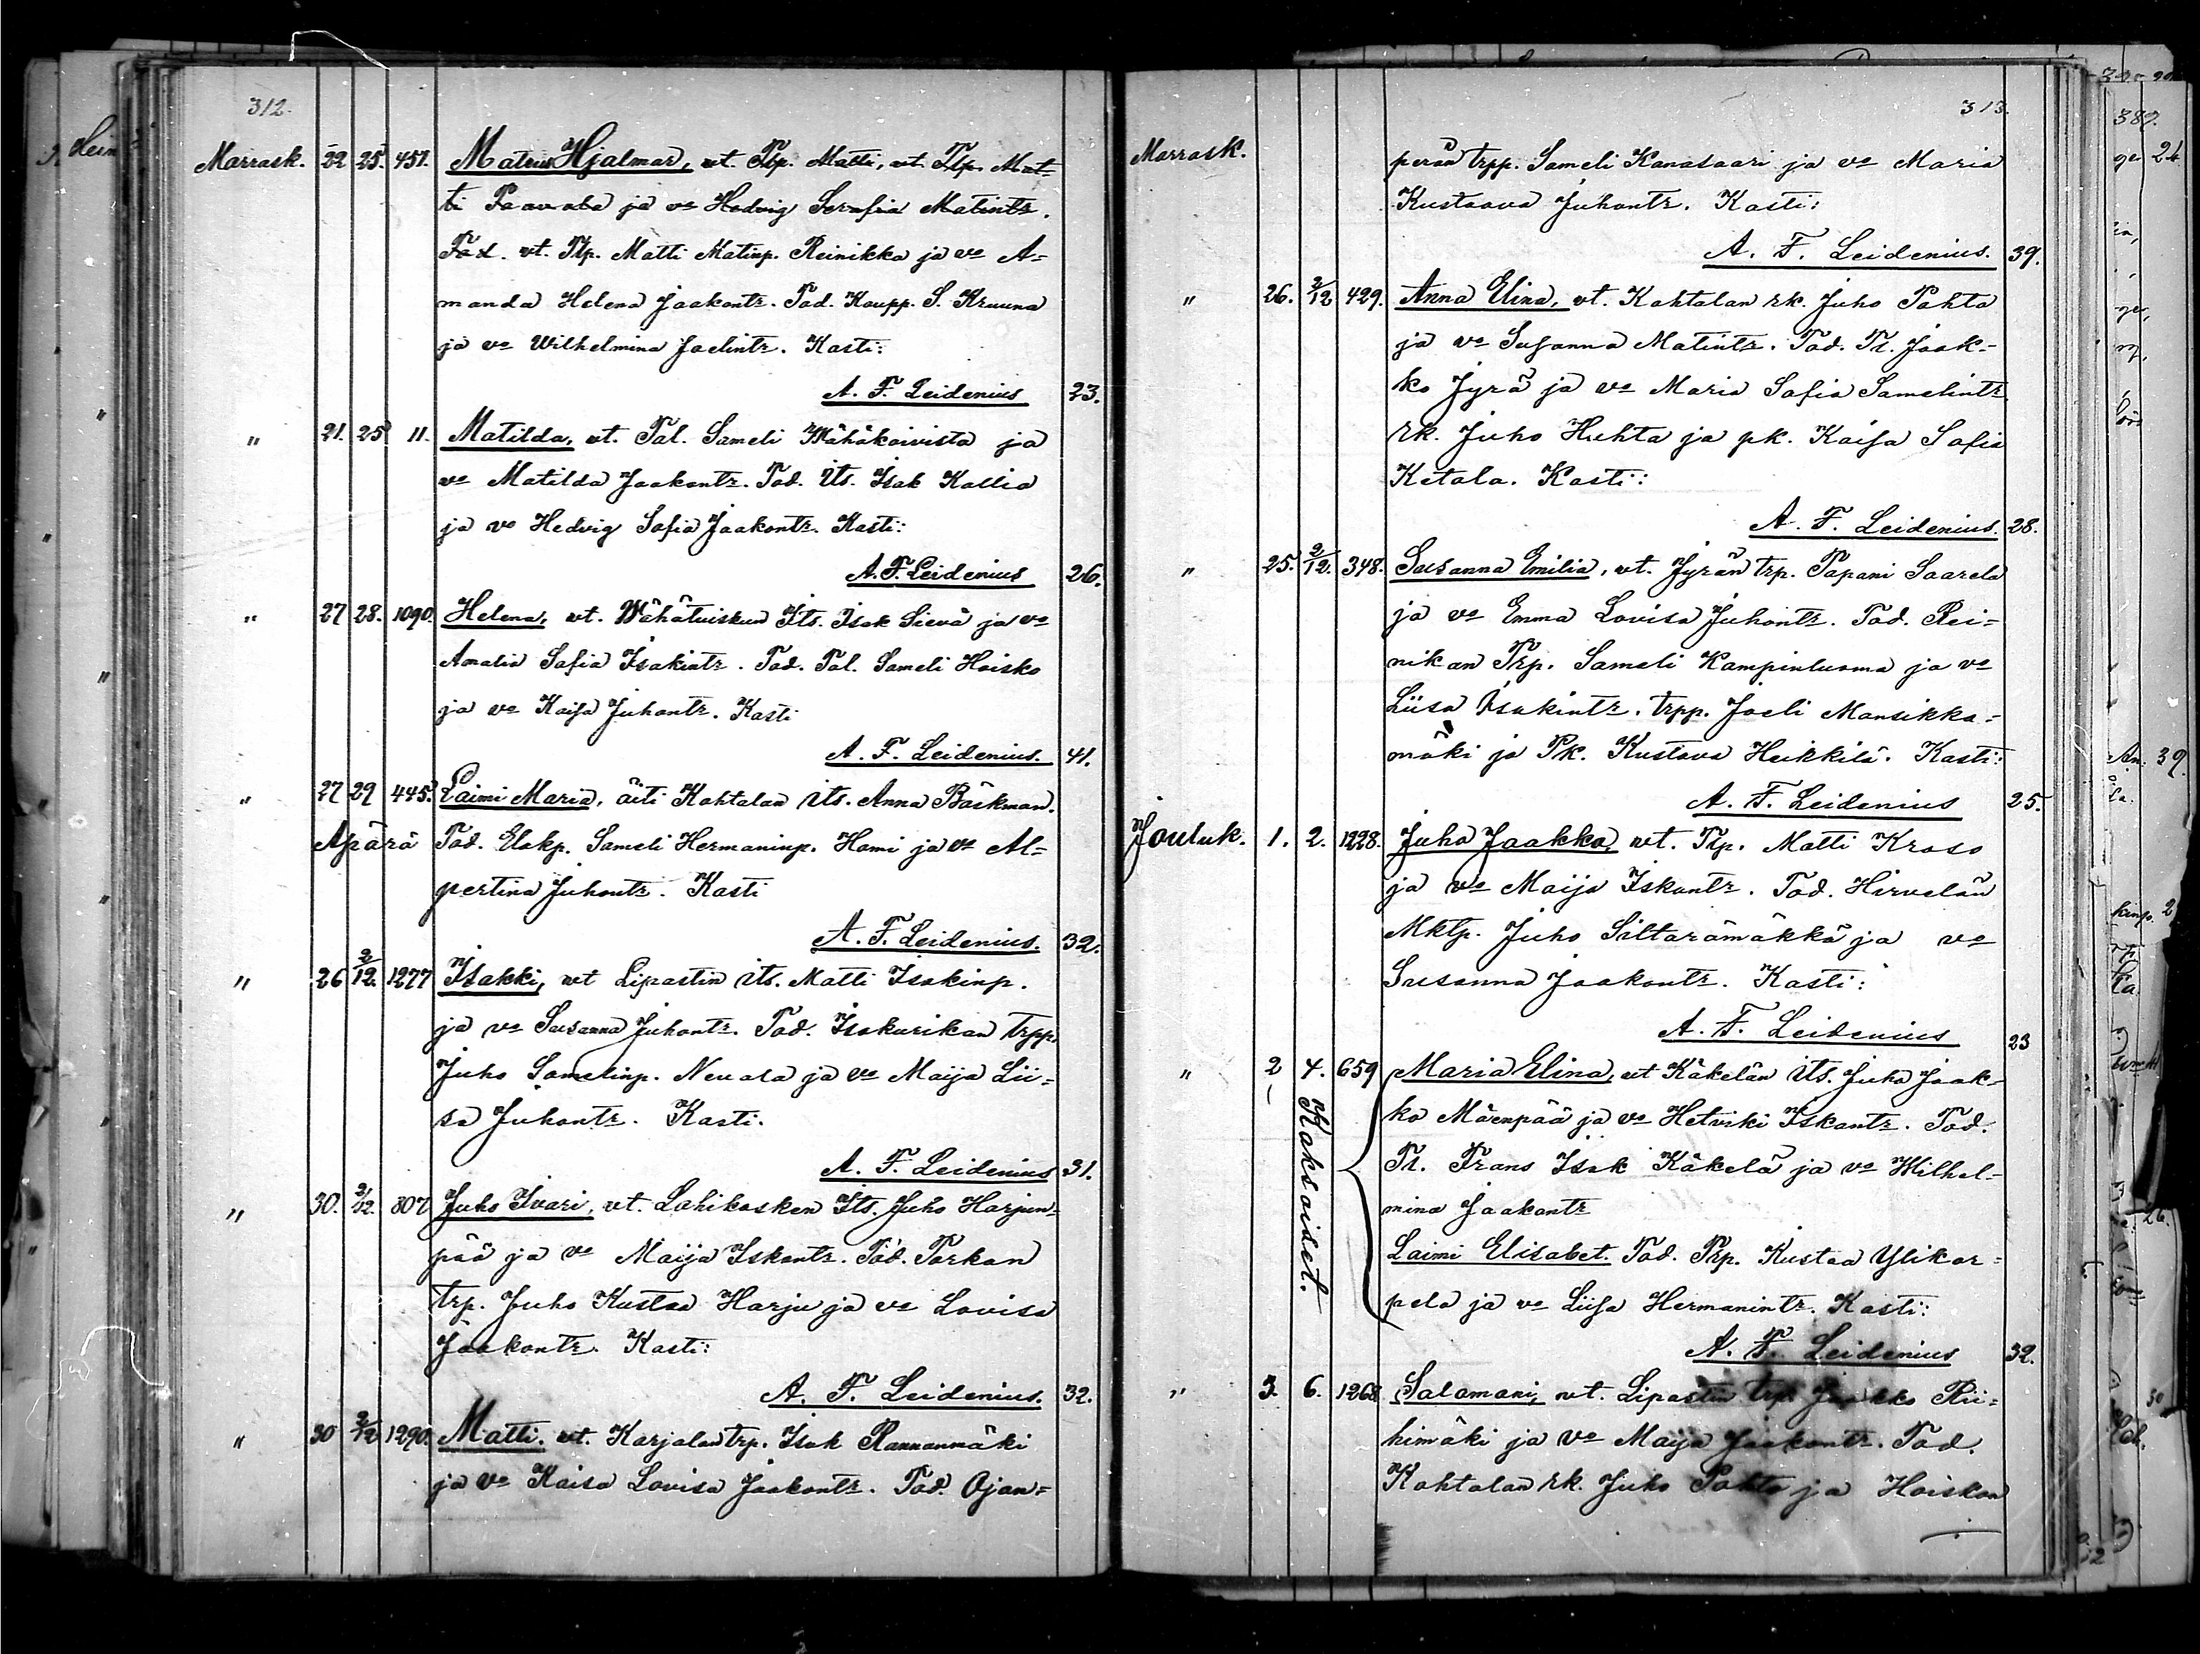 312.
Marrask. 22 25. 457. Mateus Hjalmar, vt. Tlp. Matti, vt. Tlp. Mat-
ti Paavola ja vo Hedvig Serafia Matintr.
Tod. vt. Tlp. Matti Matinp. Reinikka ja vo A-
manda Helena Jaakontr. Tod. Kaupp. S. Kruuna
ja vo Wilhelmina Joelintr. Kasti:
A. F. Leidenius 23.
" 21. 25 11. Matilda, vt. Tal. Sameli Wähäkoivisto ja
vo Matilda Jaakontr. Tod. Its. Isak Kallio
ja vo Hedvig Sofia Jaakontr. Kasti:
A. F. Leidenius 26.
" 27 28. 1090. Helena, vt. Wähätuiskun Its. Isak Sievä ja vo
Amalia Sofia Isakintr. Tod. Tal. Sameli Hoisko
ja vo Kaisa Juhontr. Kasti
A. F. Leidenius. 41.
" 27 29 445. Laimi Maria, äiti Kohtalan its. Anna Bäckman.
Äpärä Tod. Elakp. Sameli Hermaninp. Homi ja vo Al-
pertina Juhontr. Kasti
A. F. Leidenius. 32.
" 26 2/12. 1277 Isakki, vt Lipastin its. Matti Isakinp.
ja vo Susanna Juhontr. Tod. Isokurikan trpp.
Juho Samelinp. Neuala ja vo Maija Lii-
sa Juhontr. Kasti.
A. F. Leidenius 31.
" 30. 2/12. 807 Juho Ivari, vt. Lahikosken Its. Juho Harjun-
pää ja vo Maija Iskontr. Tod. Porkan
trp. Juho Kustaa Harju ja vo Lovisa
Jaakontr. Kasti:
A. F. Leidenius. 32.
" 30 2/12 1290. Matti. vt. Karjalan trp. Isak Rannanmäki
ja vo Kaisa Lovisa Jaakontr. Tod. Ojan-
313.
Marrask. perän trpp. Sameli Kanasaari ja vo Maria
Kustaava Juhontr. Kasti:
A. F. Leidenius. 39.
" 26. 2/12 429. Anna Elina, vt. Kohtalan rk. Juho Pohto
ja vo Susanna Matintr. Tod. Tl. Jaak-
ko Jyrä ja vo Maria Sofia Samelintr
rk. Juho Huhta ja pk. Kaisa Sofia
Ketola. Kasti:
A. F. Leidenius. 28.
" 25. 2/12. 348. Susanna Emilia, vt. Jyrän trp. Tapani Saarela
ja vo Emma Lovisa Juhontr. Tod. Rei-
nikan Trp. Sameli Kampinluoma ja vo
Liisa Isakintr. trpp. Joeli Mansikka-
mäki ja Pk. Kustava Heikkilä. Kasti:
A. F. Leidenius 25.
Jouluk. 1. 2. 1228. Juho Jaakko, vt. Trp. Matti Kraso
ja vo Maija Iskontr. Tod. Hirvelän
Mktp. Juho Siltarämäkkä ja vo
Susanna Jaakontr. Kasti:
A. F. Leidenius 23
" 2 4. 659 Maria Elina, vt Käkelän its. Juho Jaak-
ko Mäenpää ja vo Hetviki Iskontr. Tod.
Tl. Frans Isak Käkelä ja vo Wilhel-
mina Jaakontr
Kaksoiset.
Laimi Elisabet. Tod. Trp. Kustaa Ylikor-
pela ja vo Liisa Hermanintr. Kasti:
A. F. Leidenius 32.
" 3. 6. 1268 Salamani, vt. Lipastin trp. Jaakko Rii-
himäki ja vo Maija Jaakontr. Tod.
Kohtalan rk. Juho Pohto ja Hoiskon